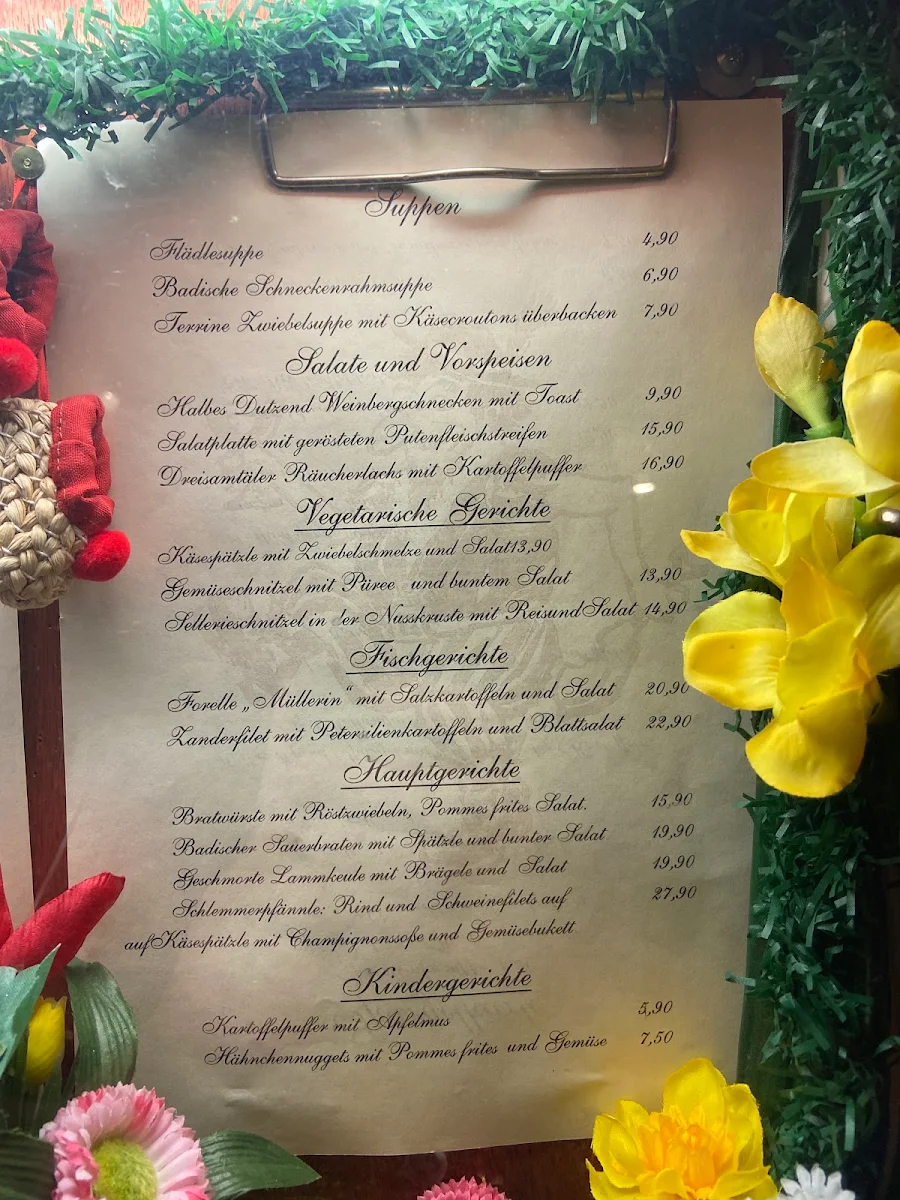 Suppen
Flädlesuppe 4,90
Badische Schneckenrahmsuppe 6,90
Terrine Zwiebelsuppe mit Käsecroutons überbacken 7,90
Salate und Vorspeisen
Halbes Dutzend Weinbergschnecken mit Toast 9,90
Salatplatte mit gerösteten Putenfleischstreifen 15,90
Dreisamtäler Räucherlachs mit Kartoffelpuffer 16,90
Vegetarische Gerichte
Käsespätzle mit Zwiebelschmelze und Salat13,90
Gemüseschnitzel mit Püree und buntem Salat 13,90
Sellerieschnitzel in der Nusskruste mit ReisundSalat 14,90
Fischgerichte
Forelle „Müllerin“ mit Salzkartoffeln und Salat 20,90
Zanderfilet mit Petersilienkartoffeln und Blattsalat 22,90
Hauptgerichte
Bratwürste mit Röstzwiebeln, Pommes frites Salat. 15,90
Badischer Sauerbraten mit Spätzle und bunter Salat 19,90
Geschmorte Lammkeule mit Brägele und Salat 19,90
Schlemmerpfännle: Rind und Schweinefilets auf 27,90
aufKäsespätzle mit Champignonssoße und Gemüsebukett
Kindergerichte
Kartoffelpuffer mit Apfelmus 5,90
Hähnchennuggets mit Pommes frites und Gemüse 7,50